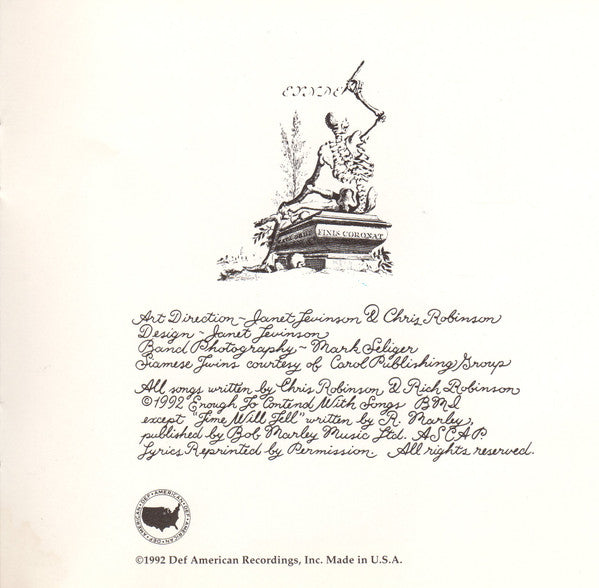 ENDE
FINIS CORONAT
Art Direction ~ Janet Levinson & Chris Robinson
Design ~ Janet Levinson
Band Photography ~ Mark Seliger
Siamese Twins courtesy of Carol Publishing Group
All songs written by Chris Robinson & Rich Robinson
©1992 Enough To Contend With Songs BMI
except "Time Will Tell" written by R. Marley,
published by Bob Marley Music Ltd. ASCAP
Lyrics Reprinted by Permission. All rights reserved.
DEF•AMERICAN•DEF•AMERICAN•DEF•AMERICAN•
©1992 Def American Recordings, Inc. Made in U.S.A.